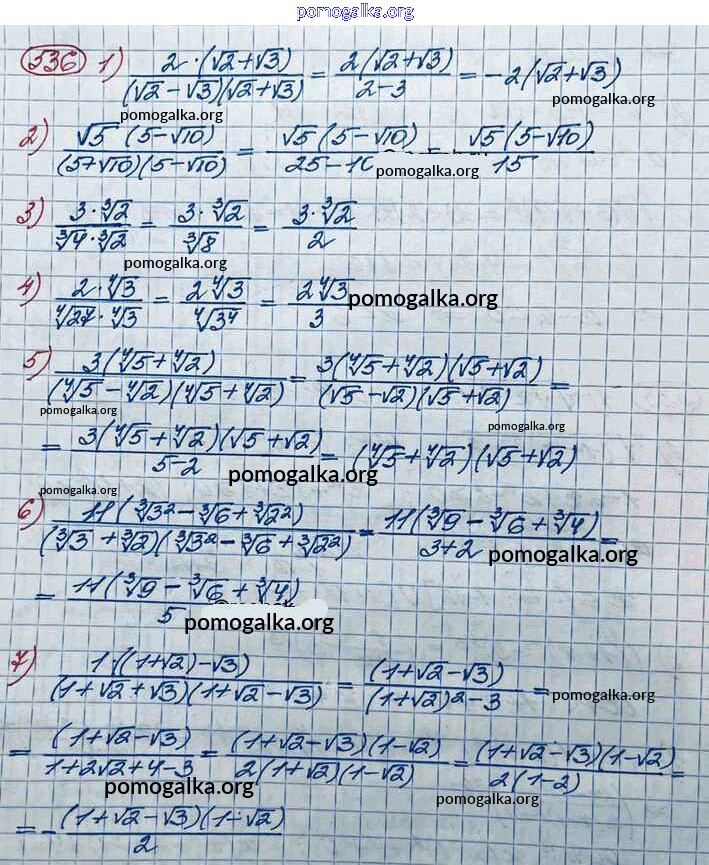 pomogalka.org
536 1) 2·(√2+√3)/(√2−√3)(√2+√3) = 2(√2+√3)/2−3 = −2(√2+√3)
pomogalka.org
pomogalka.org
2) √5 (5−√10)/(5+√10)(5−√10) = √5(5−√10)/25−10 √5(5−√10)/15
pomogalka.org
3) 3·∛2/∛4·∛2 = 3·∛2/∛8 = 3·∛2/2
pomogalka.org
4) 2·∜3/∜27·∜3 = 2∜3/∜3⁴ = 2∜3/3
pomogalka.org
5) 3(∜5+∜2)/(∜5−∜2)(∜5+∜2) = 3(∜5+∜2)(√5+√2)/(√5−√2)(√5+√2) =
pomogalka.org
pomogalka.org
= 3(∜5+∜2)(√5+√2)/5−2 = (∜5+∜2)(√5+√2)
pomogalka.org
pomogalka.org
6) 11(∛3²−∛6+∛2²)/(∛3+∛2)(∛3²−∛6+∛2²) = 11(∛9−∛6+∛4)/3+2 =
pomogalka.org
= 11(∛9−∛6+∛4)/5
pomogalka.org
7) 1·((1+√2)−√3)/(1+√2+√3)(1+√2−√3) = (1+√2−√3)/(1+√2)²−3 =
pomogalka.org
= (1+√2−√3)/1+2√2+4−3 = (1+√2−√3)(1−√2)/2(1+√2)(1−√2) = (1+√2−√3)(1−√2)/2(1−2) =
pomogalka.org
pomogalka.org
= −(1+√2−√3)(1−√2)/2